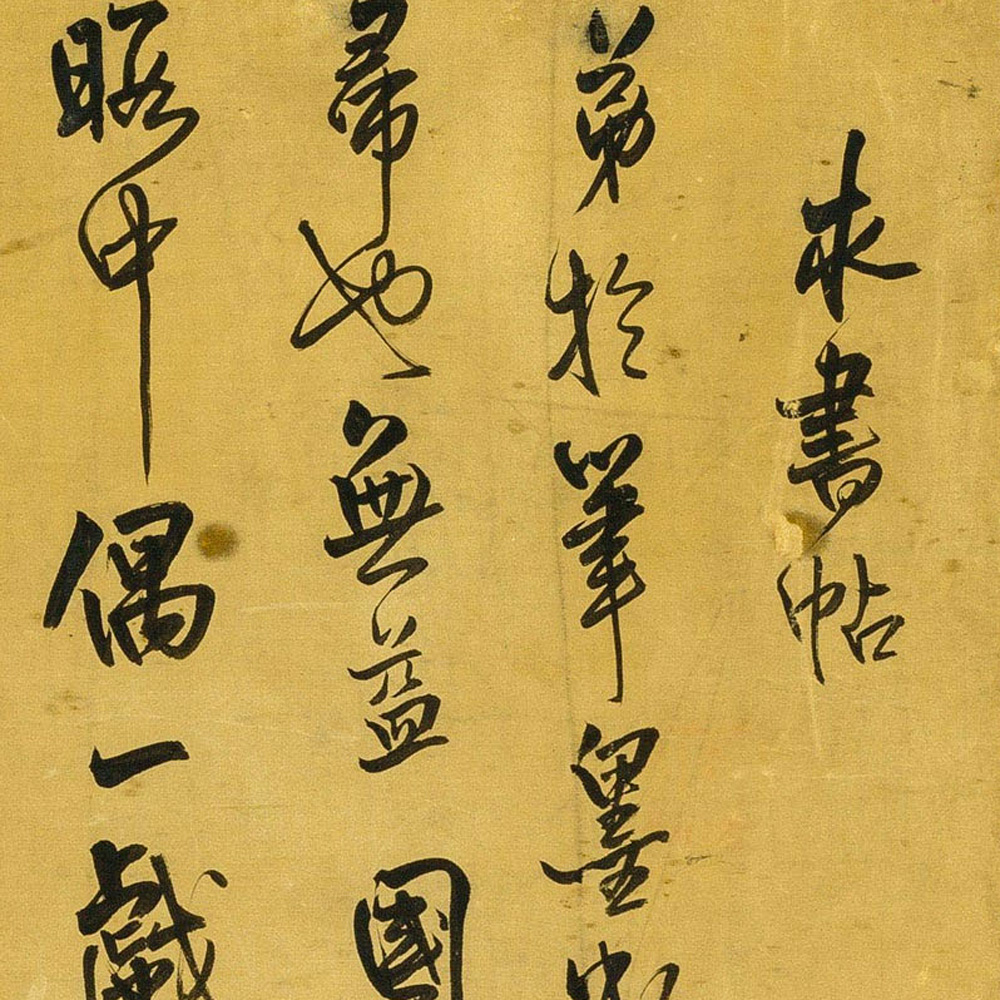 求書帖
弟於筆墨
帚也無益國
暇中偶一戲